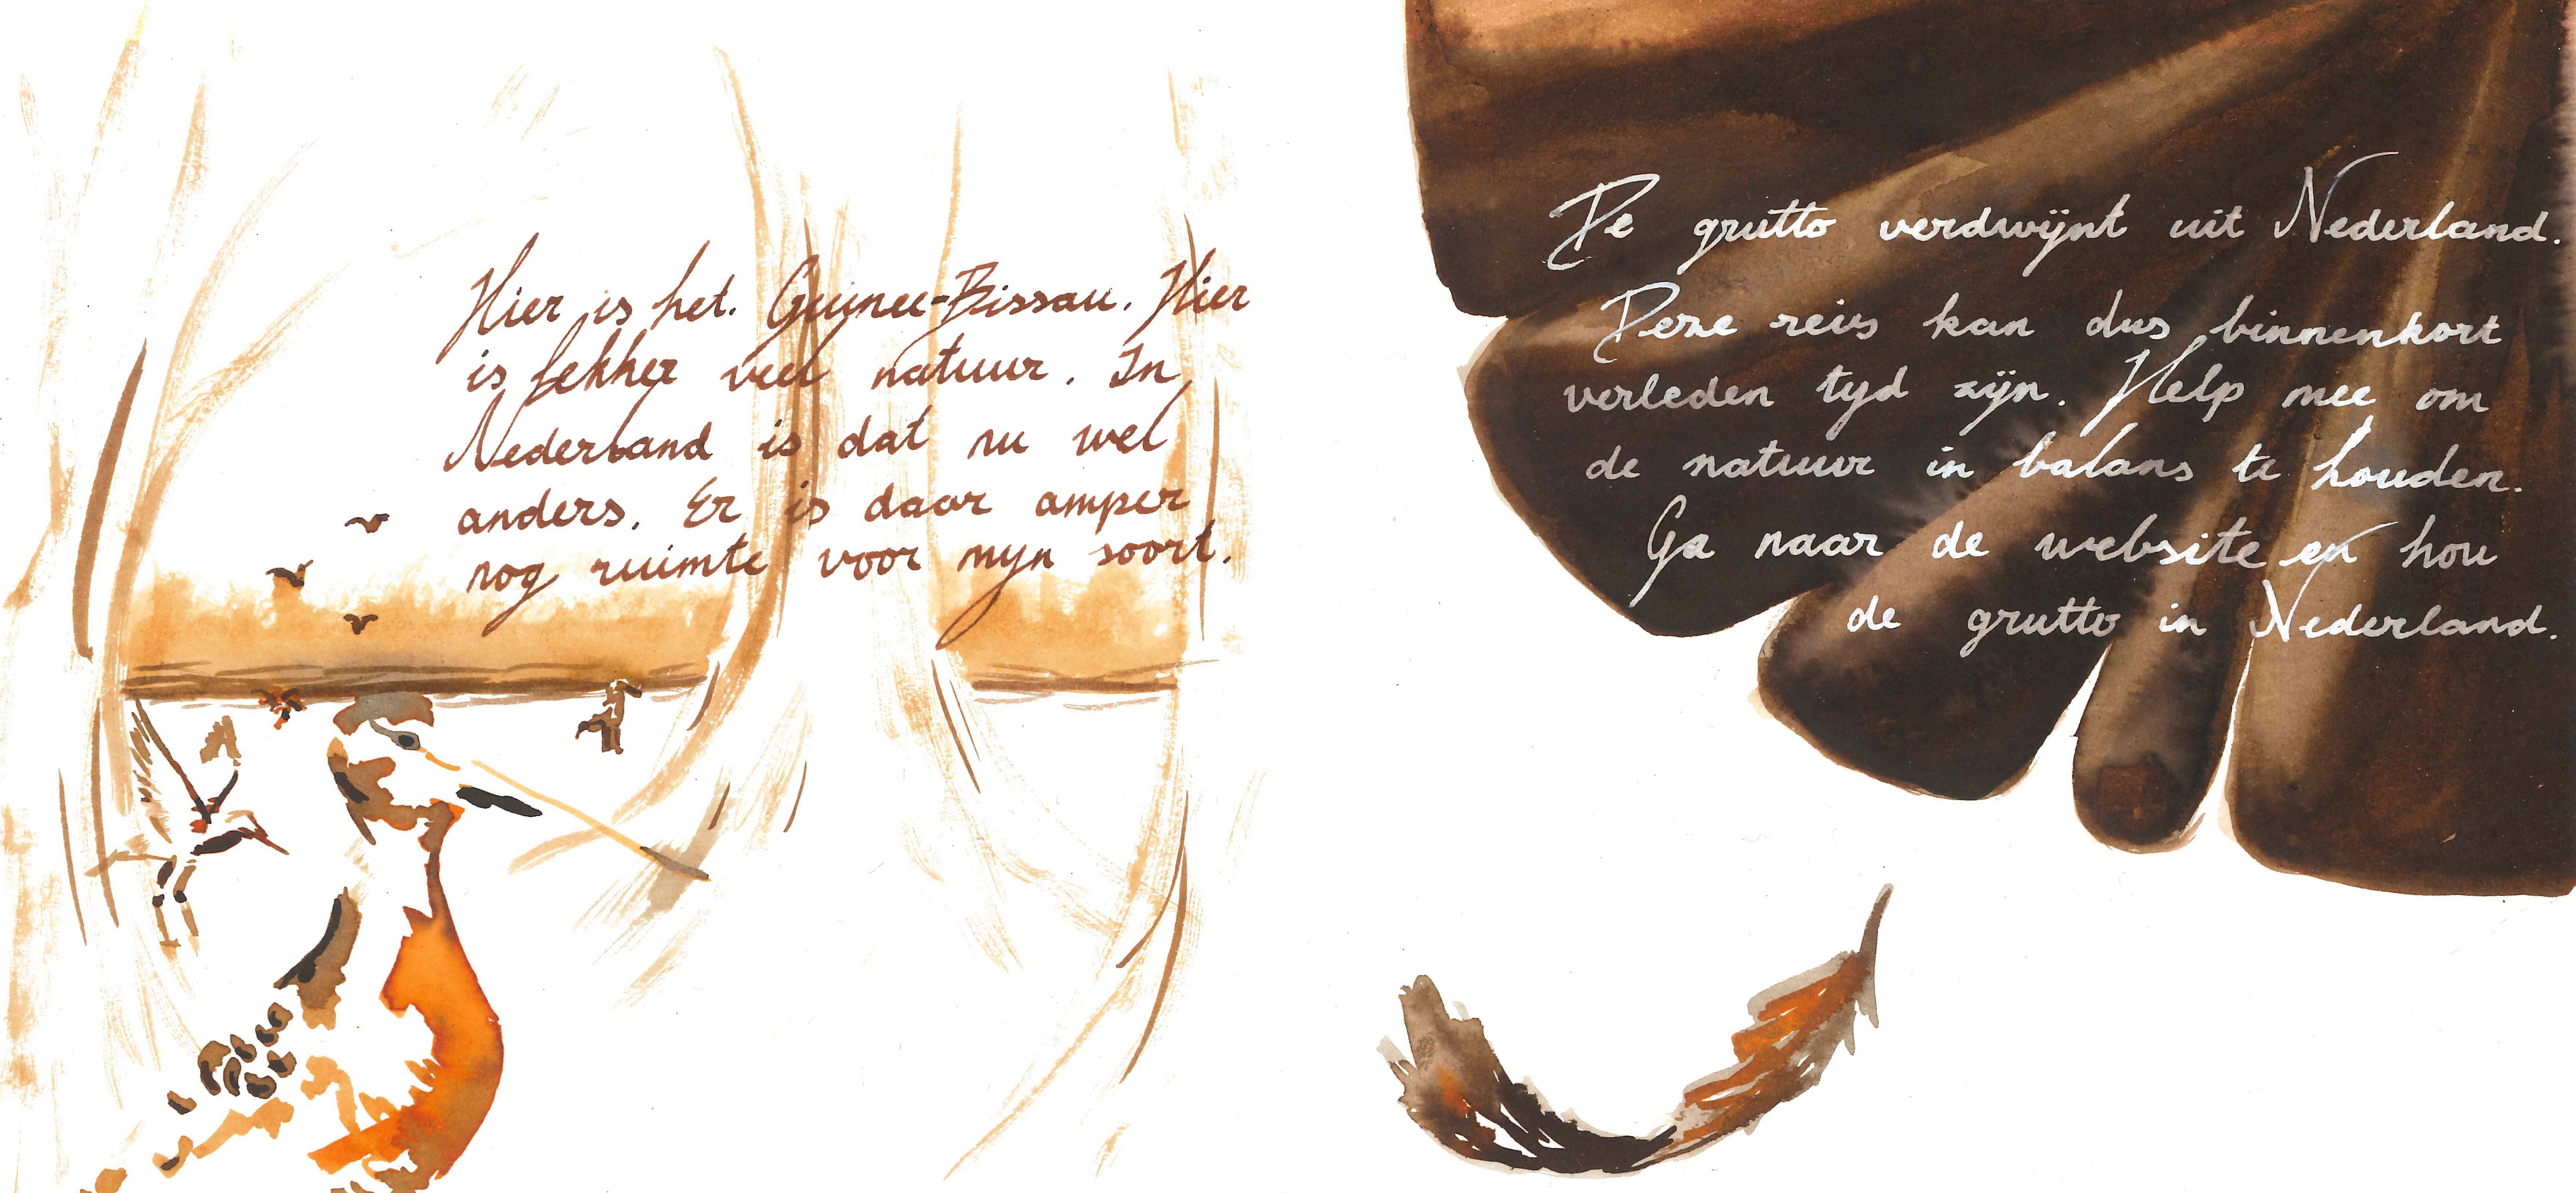 Hier is het. Guinee-Bissau. Hier
is lekker veel natuur. In
Nederland is dat nu wel
anders. Er is daar amper
nog ruimte voor mijn soort.
De grutto verdwijnt uit Nederland.
Deze reis kan dus binnenkort
verleden tijd zijn. Help mee om
de natuur in balans te houden.
Ga naar de website en hou
de grutto in Nederland.